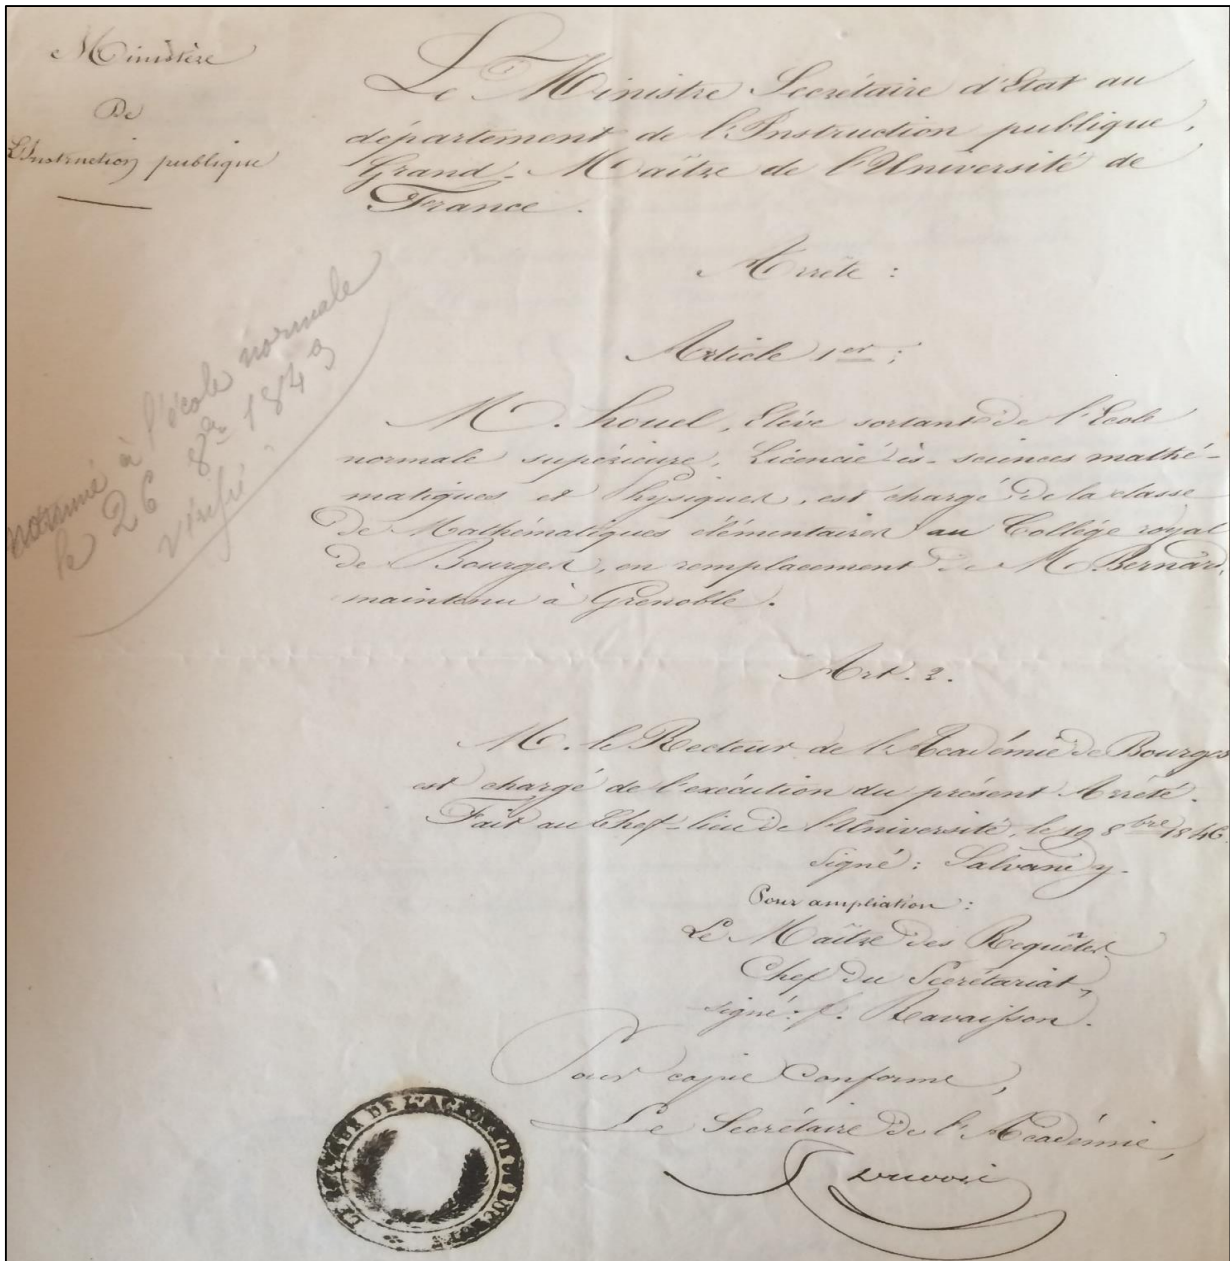 Ministère
De
L'Instruction publique
Le Ministre Secrétaire d'Etat au
département de l'Instruction publique,
Grand-Maître de l'Université de
France.
Arrête :
Article 1er :
M. houel, Elève sortant de l'Ecole
normale supérieure, Licencié ès-sciences mathé-
matiques et Physiques, est chargé de la classe
de Mathématiques élémentaires au Collège royal
de Bourges, en remplacement de M. Bernard,
maintenu à Grenoble.
Art. 2.
M. le Recteur de l'Académie de Bourges
est chargé de l'exécution du présent Arrêté.
Fait au Chef-lieu de l'Université, le 19 8bre 1846.
Signé : Salvandy.
Pour ampliation :
Le Maître des Requêtes
Chef du Secrétariat,
signé : f. Ravaisson.
Pour copie Conforme,
Le Secrétaire de l'Académie,
nommé à l'école normale
le 26 8bre 1843
vérifié